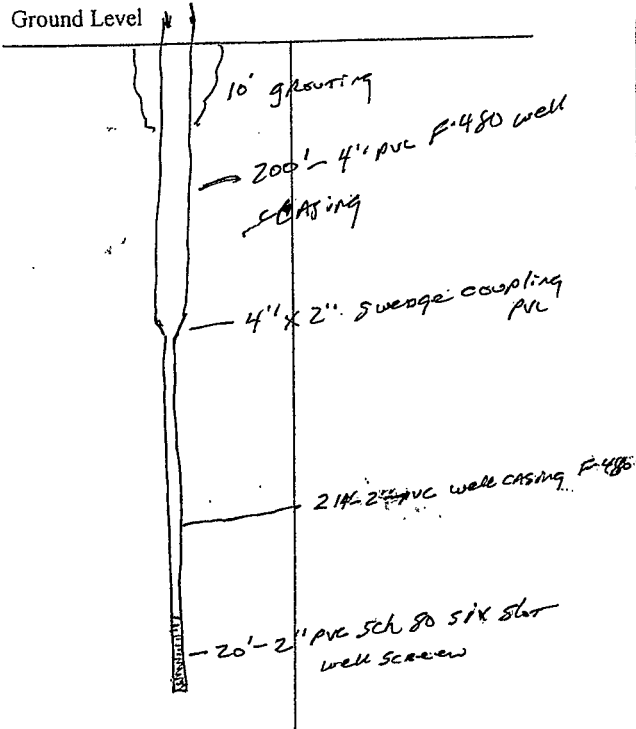 Ground Level
10' grouting
200' - 4" PVC F-480 well
CASING
4" X 2" swedge coupling
PVC
214'-2" PVC well CASING F-480
20' - 2" PVC Sch 80 six slot
well screen